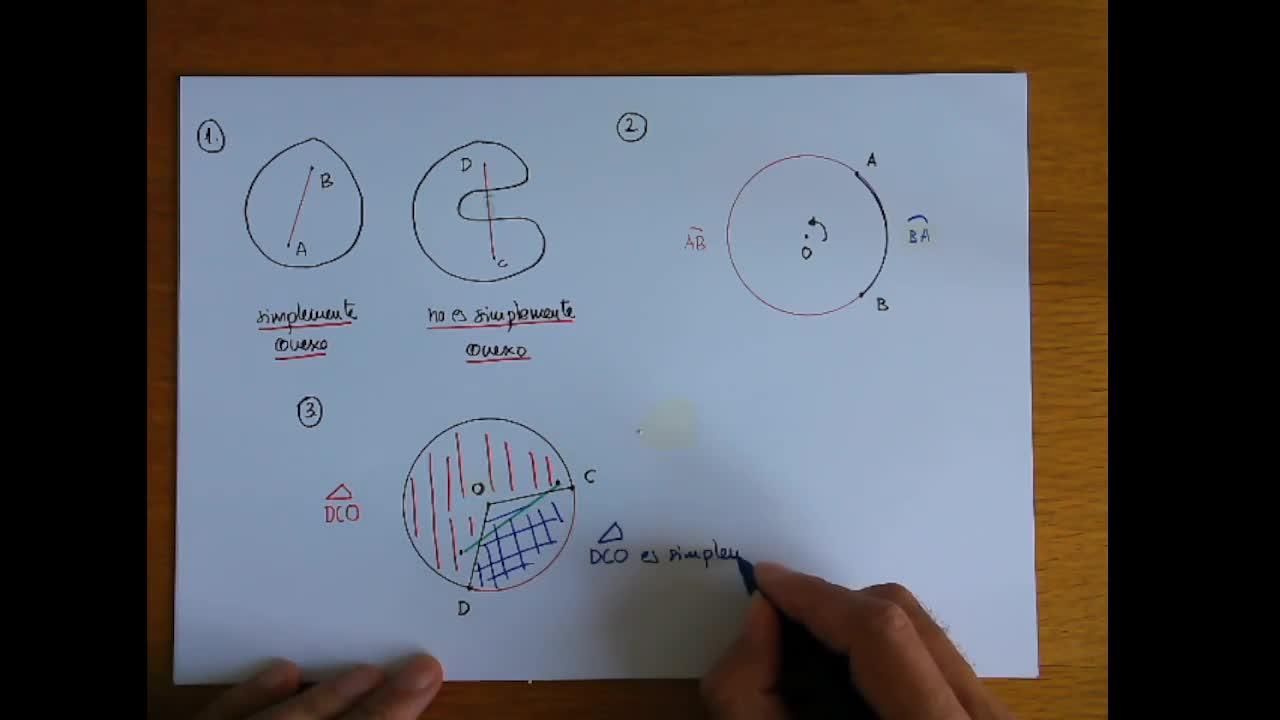 1.
B
A
simplemente
conexo
D
C
no es simplemente
conexo
2.
A
O
B
AB
BA
3.
DCO
O
C
D
DCO es simplem